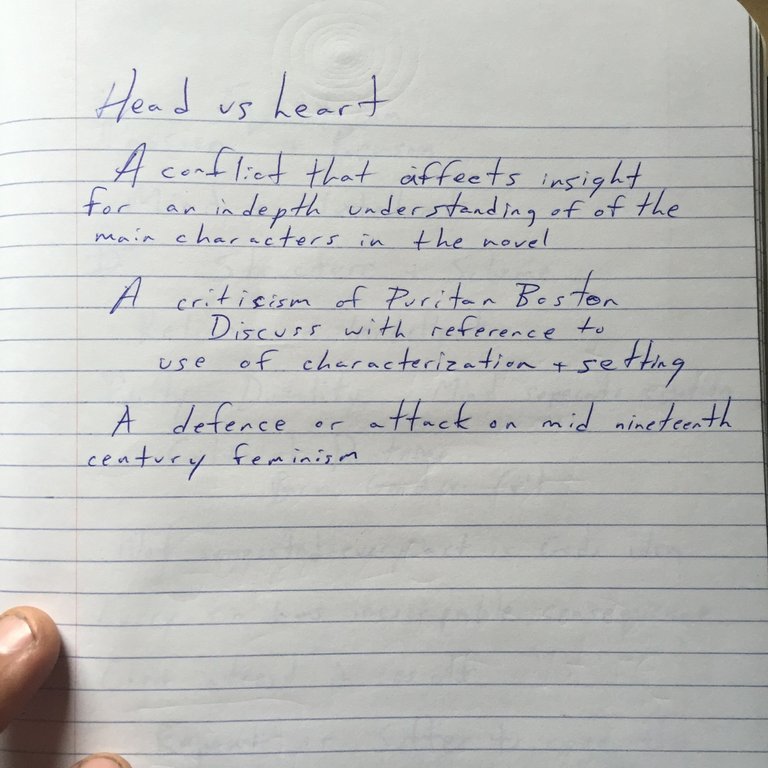 Head vs heart
A conflict that affects insight
for an indepth understanding of of the
main characters in the novel
A criticism of Puritan Boston
Discuss with reference to
use of characterization + setting
A defence or attack on mid nineteenth
century feminism